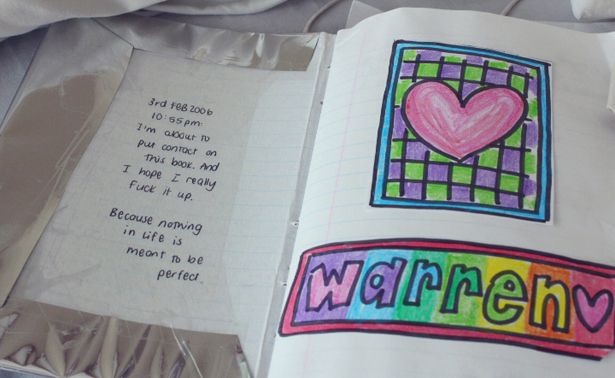 3rd FEB 2006
10:55pm:
I'm about to
put contact on
this book. And
I hope I really
fuck it up.
Because nothing
in life is
meant to be
perfect.
warren